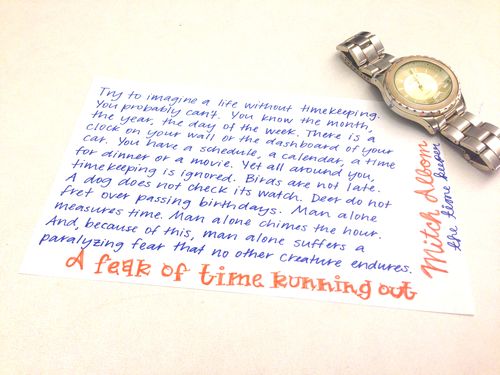 Try to imagine a life without timekeeping.
You probably can't. You know the month,
the year, the day of the week. There is a
clock on your wall or the dashboard of your
car. You have a schedule, a calendar, a time
for dinner or a movie. Yet all around you,
timekeeping is ignored. Birds are not late.
A dog does not check its watch. Deer do not
fret over passing birthdays. Man alone
measures time. Man alone chimes the hour.
And, because of this, man alone suffers a
paralyzing fear that no other creature endures.
A feaR of time Running out
Mitch Albom
the time keeper